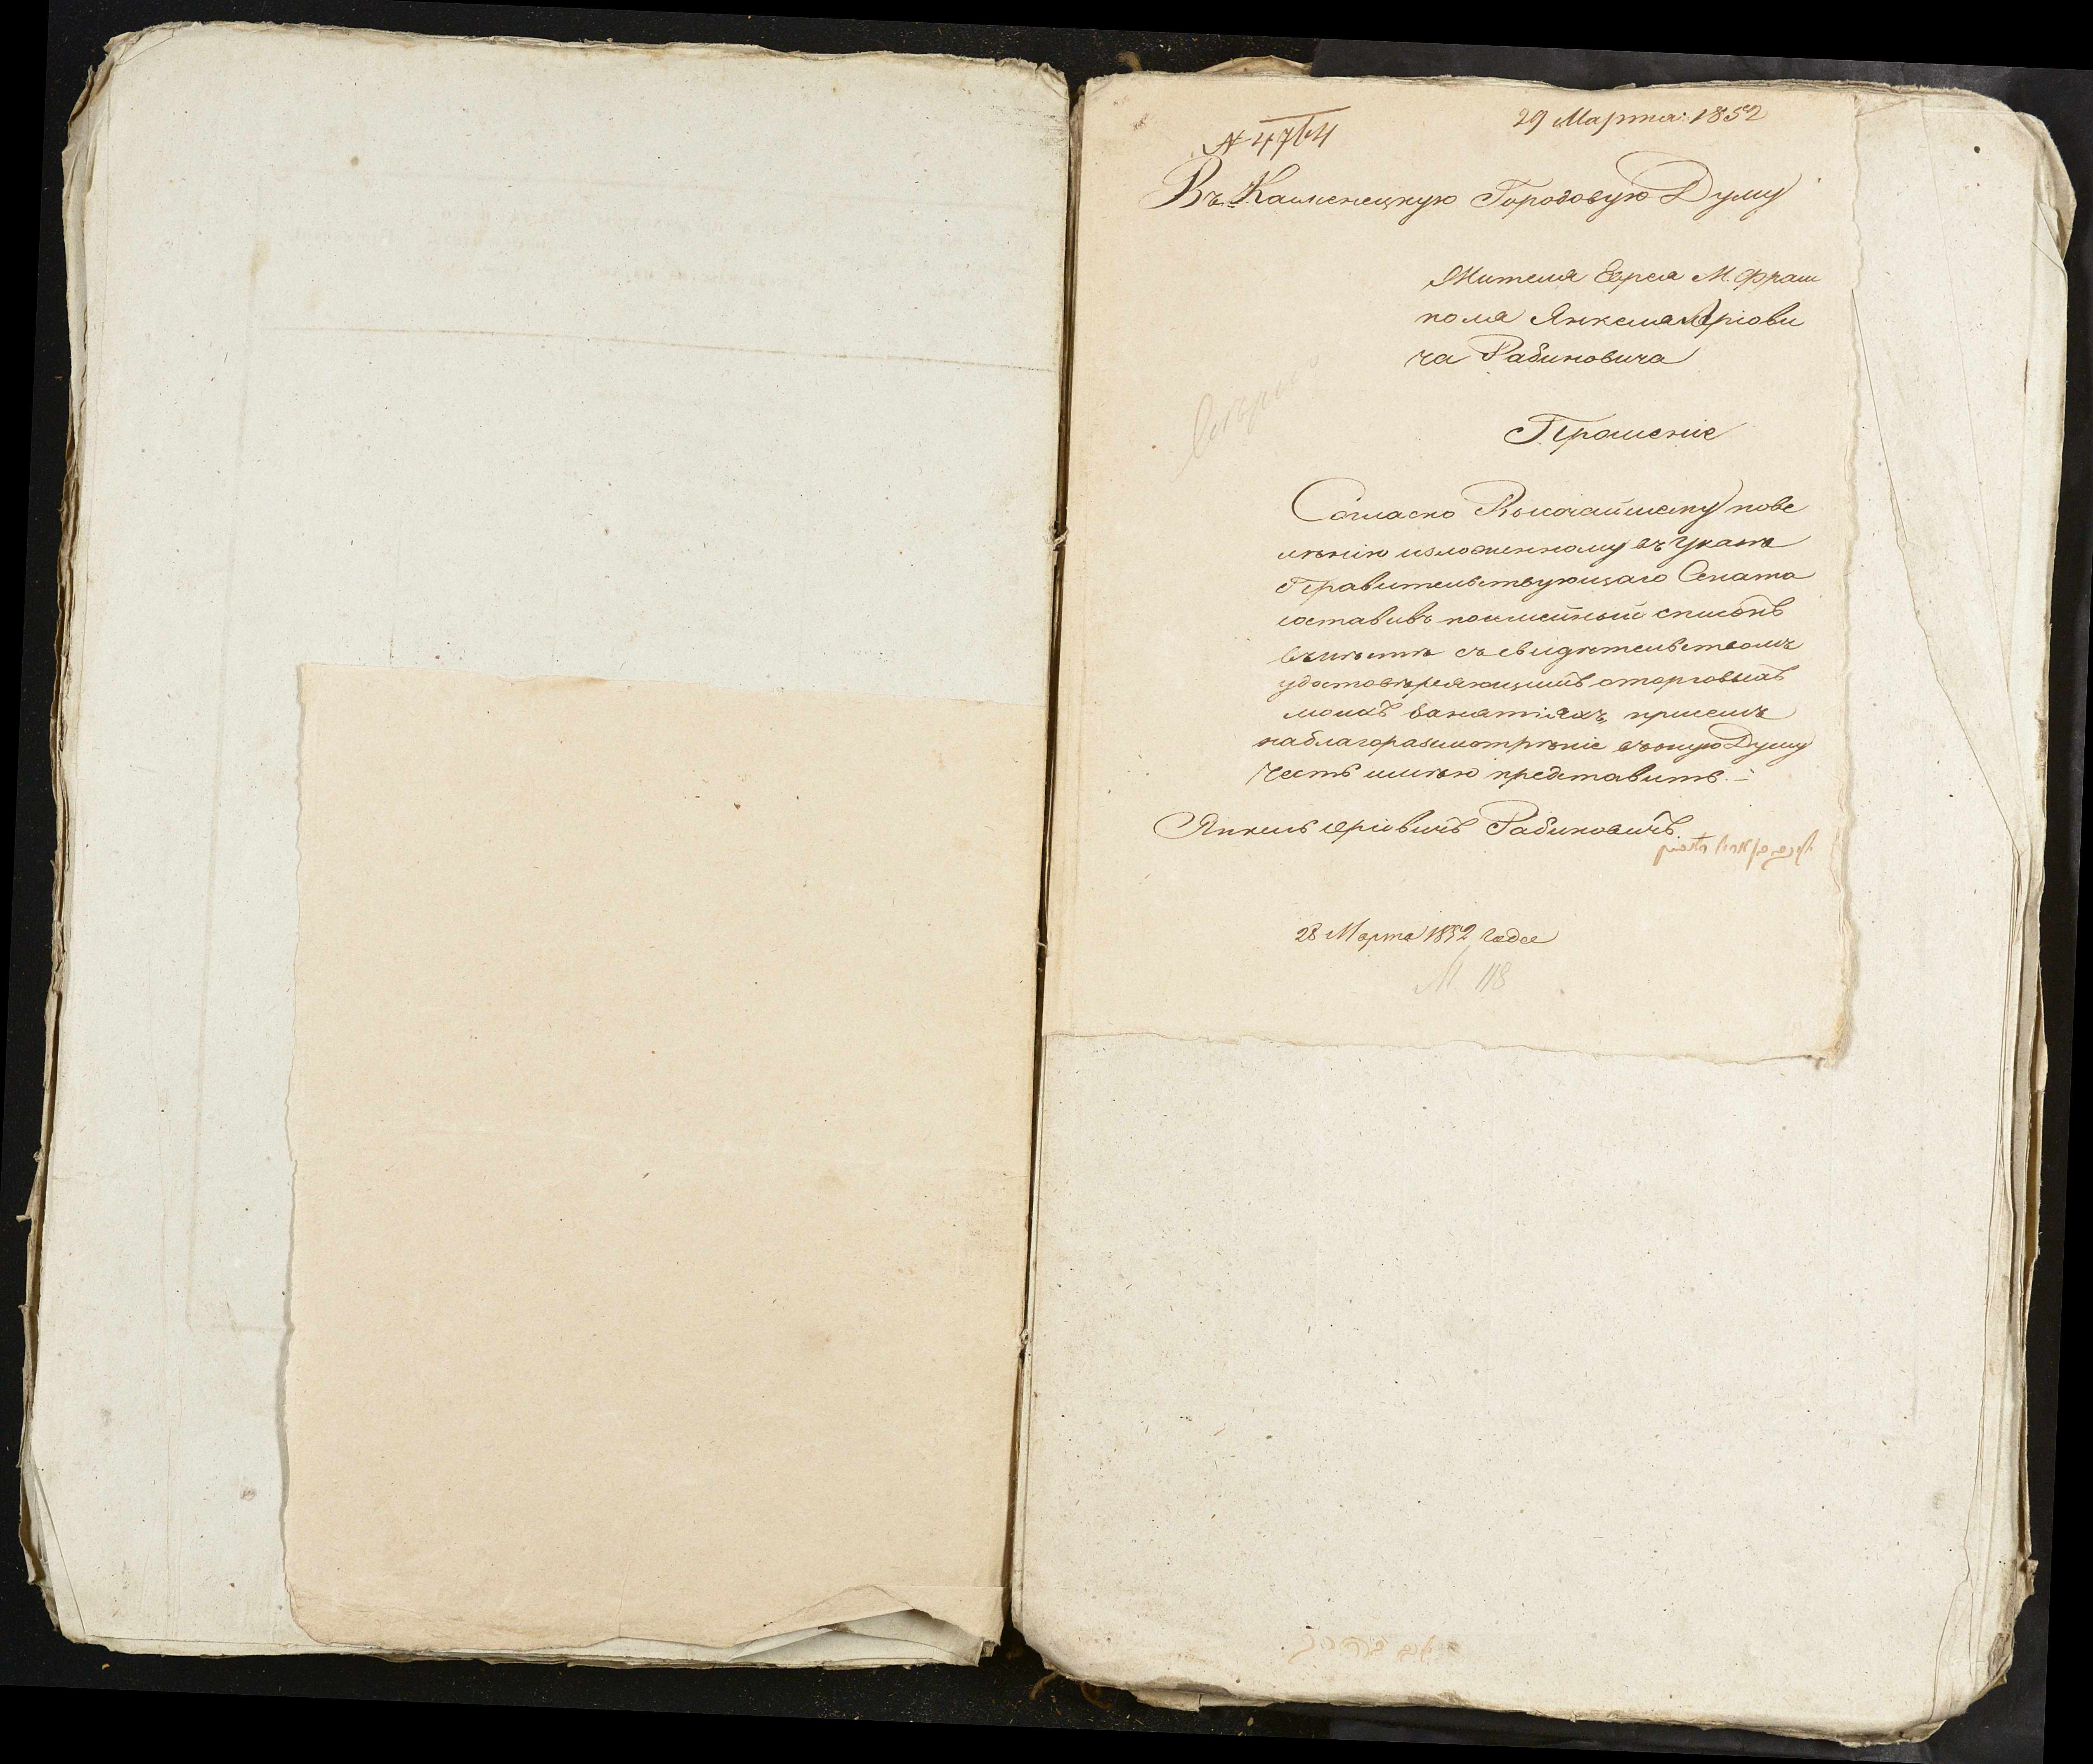 29 Марта 1852
№ 4714
Въ Каменецкую Городовую Думу
Жителя Еврея М. Фрам
пола Янкеля Аріови
ча Рабиновича
Прошеніе
Согласно Высочайшему пове
лѣнію изложенному въ Указѣ
Правительствующаго Сената
составивъ посемейный списокъ
вмѣстѣ съ свидѣтельствомъ
удостовѣряющимъ о торговыхъ
моихъ занятіяхъ, при семъ
на благоразсмотрѣніе въ оную Думу
честь имѣю представить. –
Янкель Аріовичъ Рабиновичъ
28 Марта 1852 года
М. 118